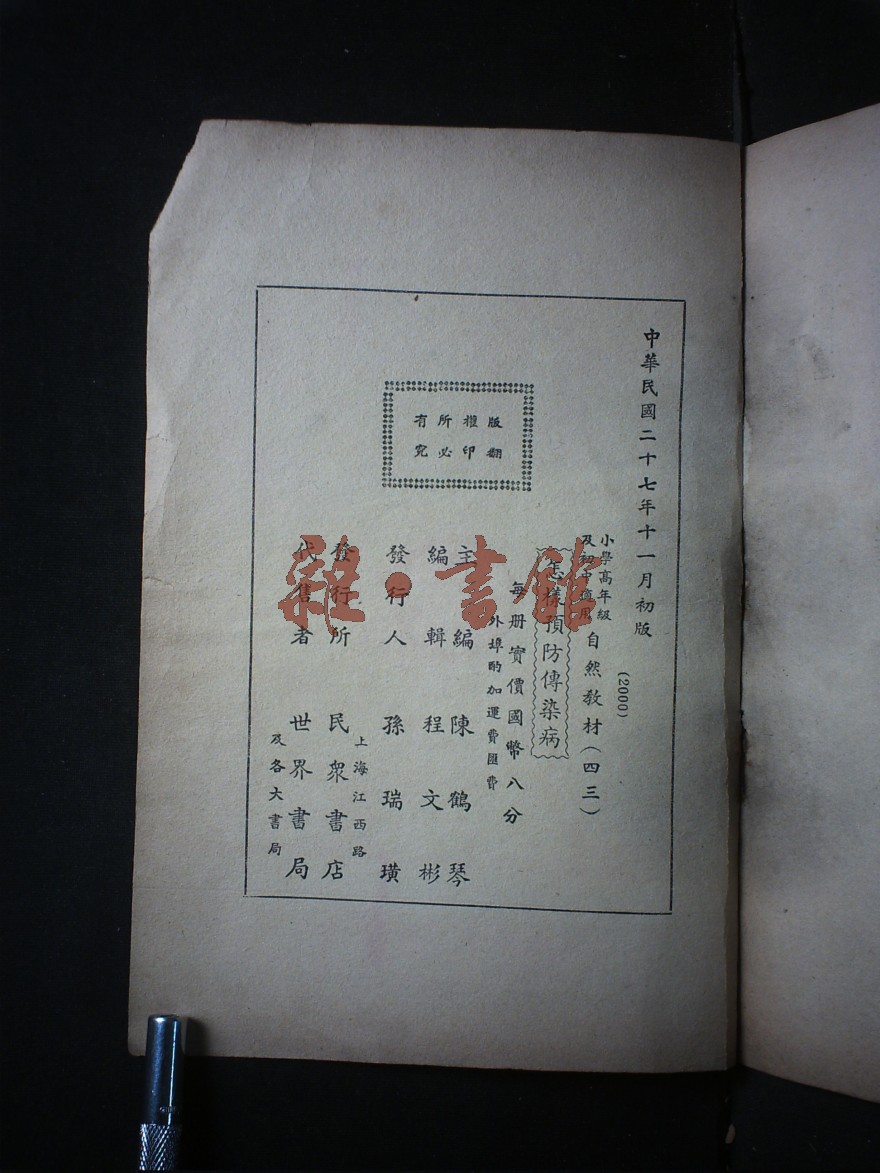 中華民國二十七年十一月初版
(2000)
小學高年級
及初中適用
自然教材(四三)
怎樣預防傳染病
每册實價國幣八分
外埠酌加運費匯費
版權所有
翻印必究
主編 陳鶴琴
編輯 程文彬
發行人 孫瑞璜
上海江西路
發行所 民衆書店
代售者 世界書局
及各大書局
雜·書館